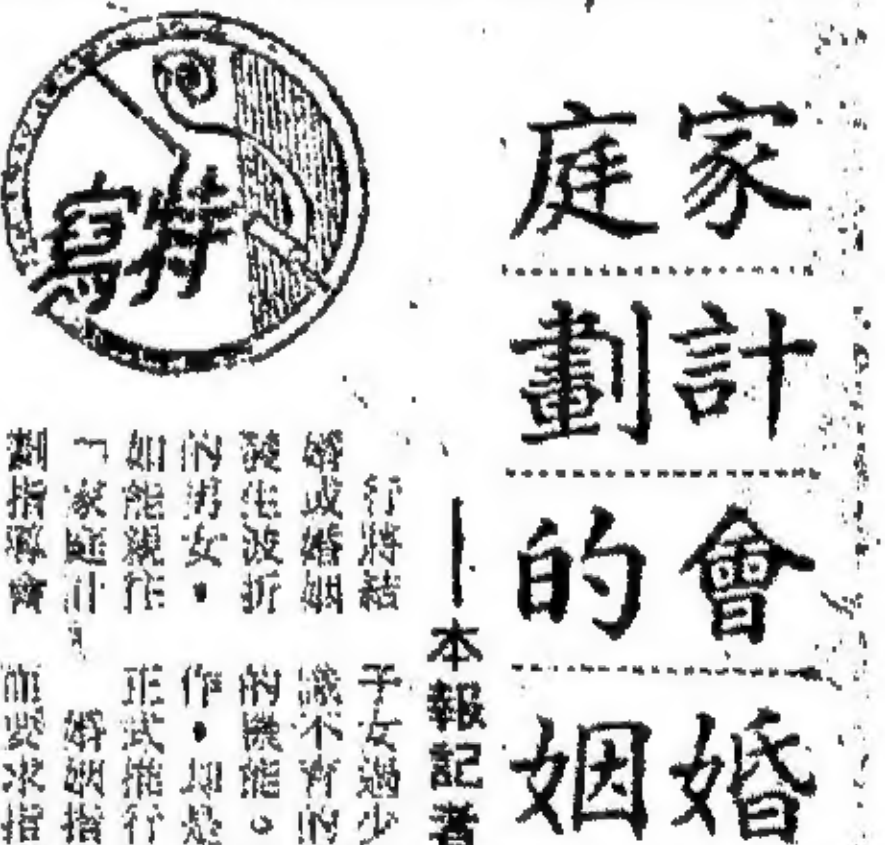 家庭
計劃
會的
婚姻
特寫
本報記者
行將結
婚或婚姻
發生波折
的男女,
如能親往
「家庭計
劃指導會
子女過少
識不育的
的機能。
作,却是
正式推行
婚姻指
而要求指